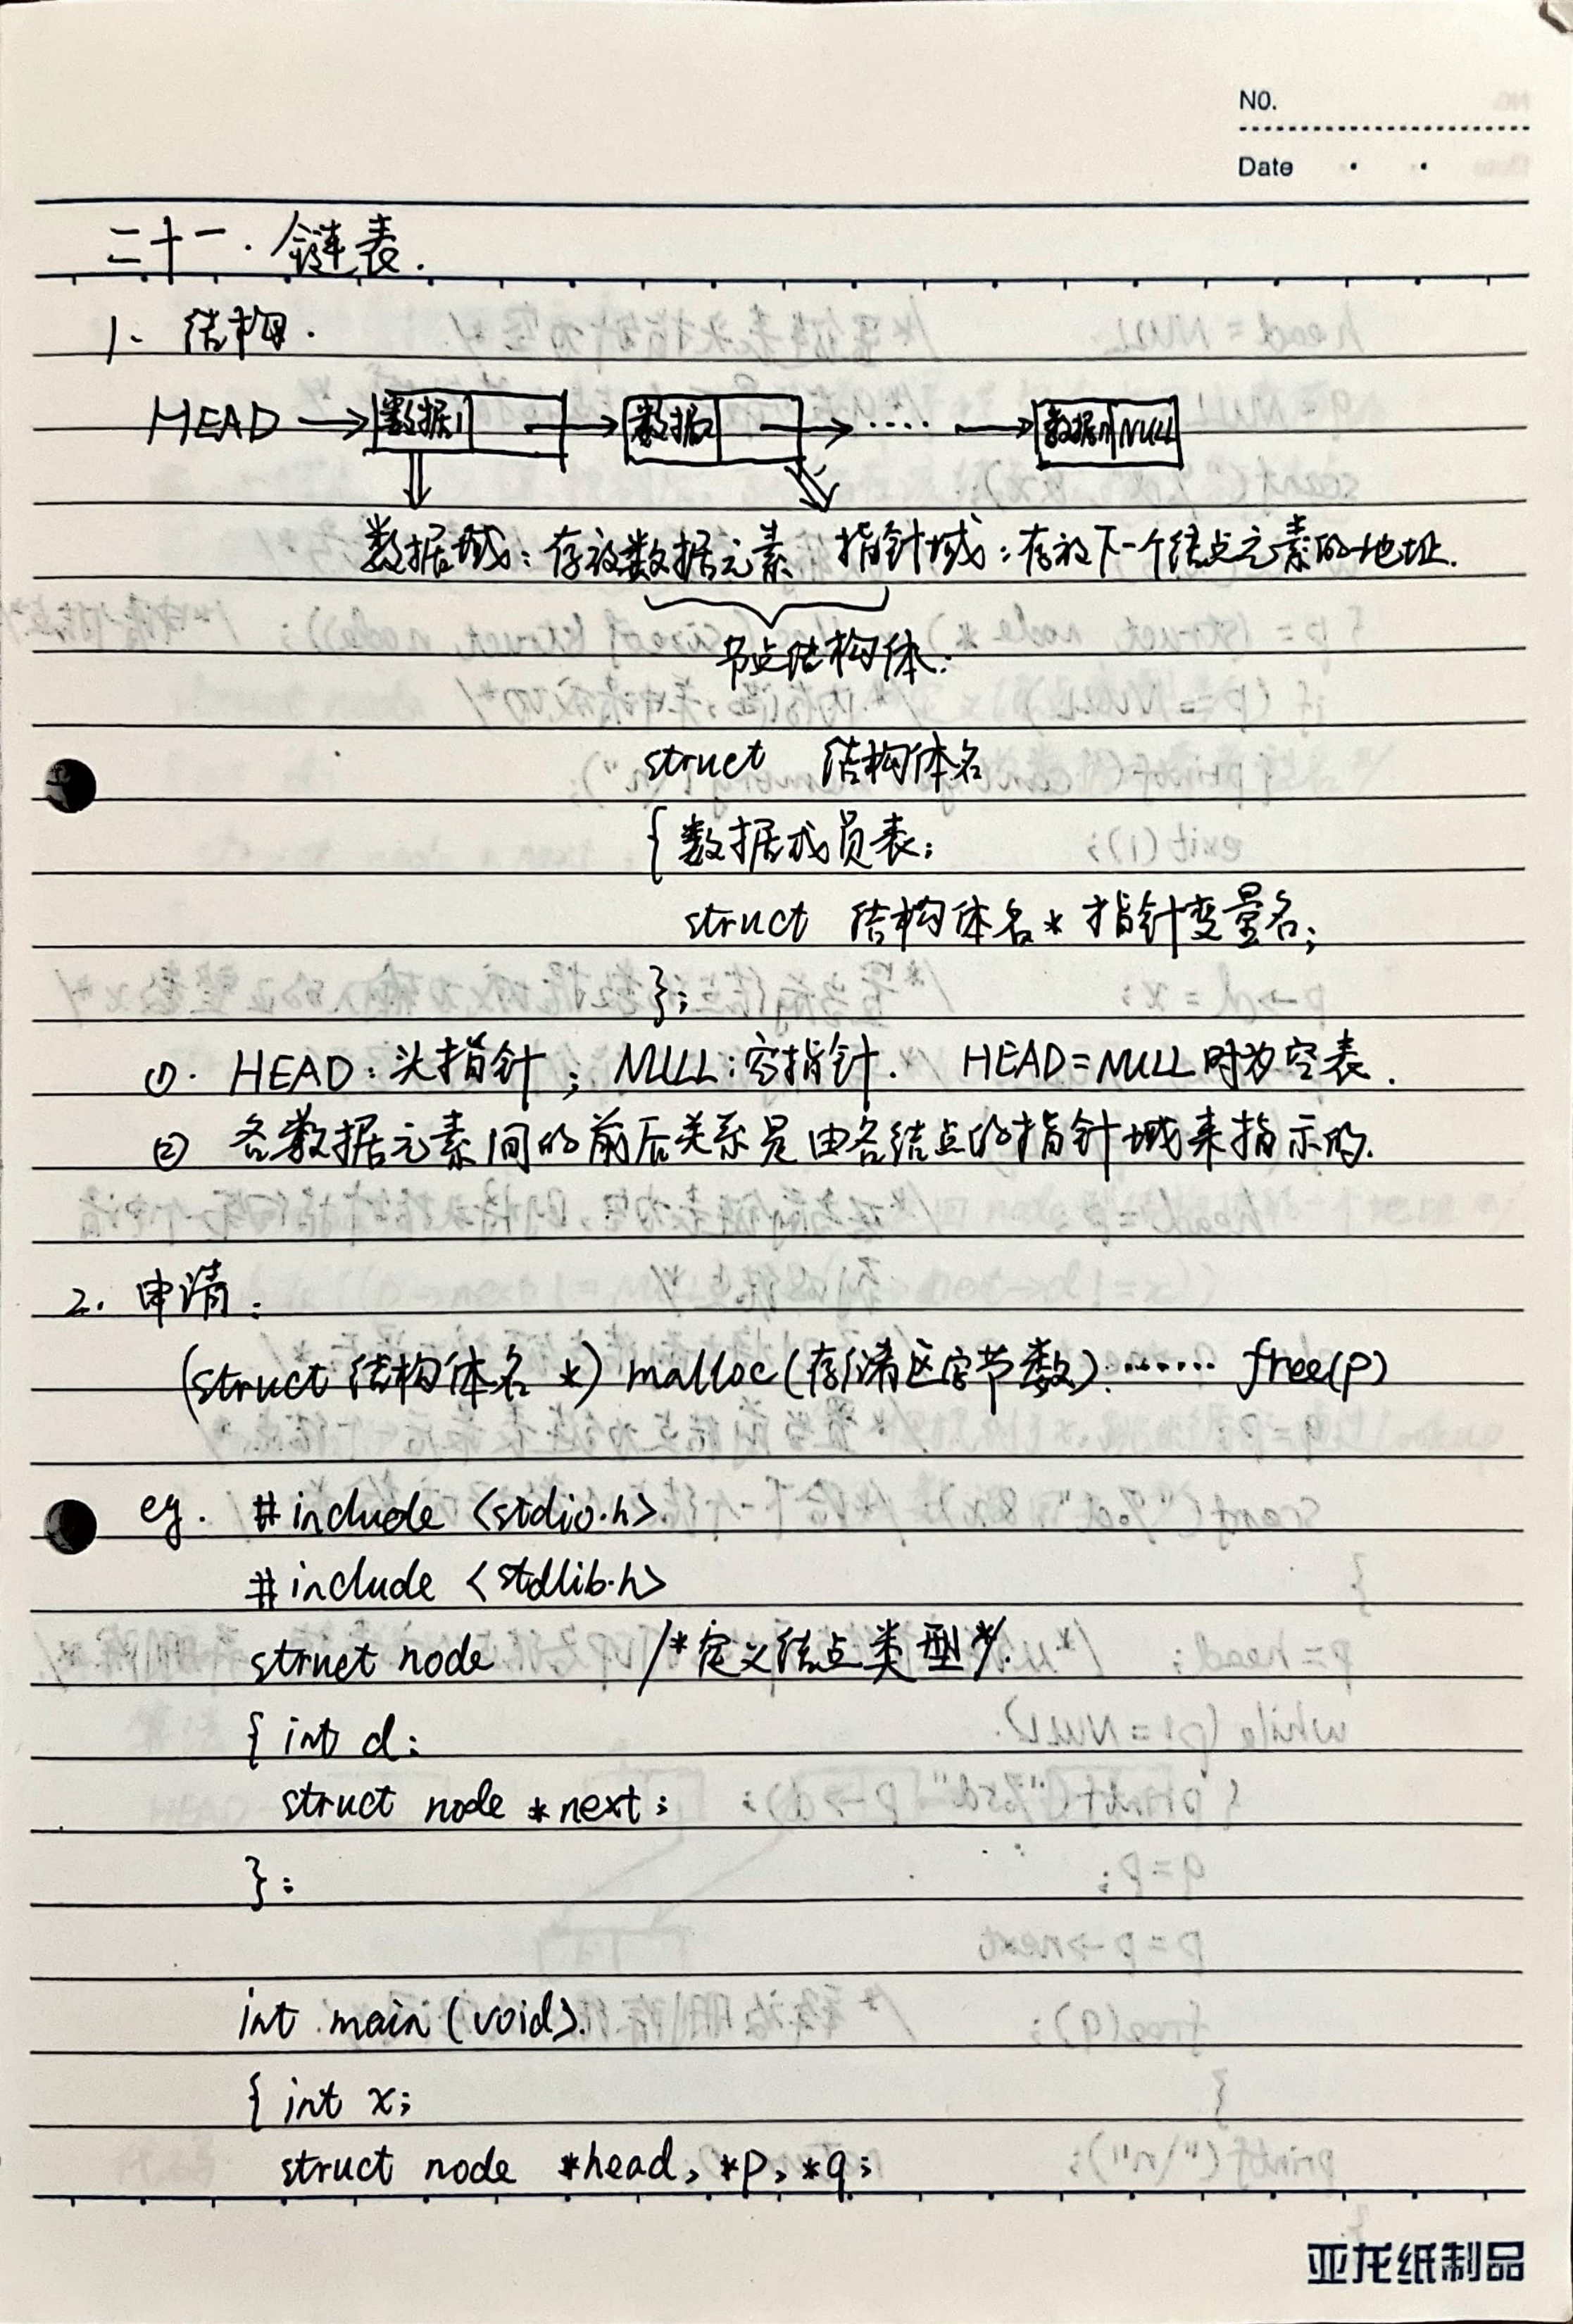 NO.
Date
二十一. 链表.
1. 结构.
HEAD → 数据1 → 数据2 → ···· → 数据n NULL
数据域：存放数据元素 指针域：存放下一个结点元素的地址.
节点结构体:
struct 结构体名
{ 数据成员表;
struct 结构体名 * 指针变量名;
};
①. HEAD：头指针；NULL：空指针. HEAD=NULL时为空表.
② 各数据元素间的前后关系是由各结点的指针域来指示的.
2. 申请:
(struct 结构体名 *) malloc (存储区字节数) ······ free(p)
eg. #include <stdio.h>
#include <stdlib.h>
struct node /*定义结点类型*/.
{ int d;
struct node *next;
};
int main (void).
{ int x;
struct node *head, *p, *q;
亚龙纸制品